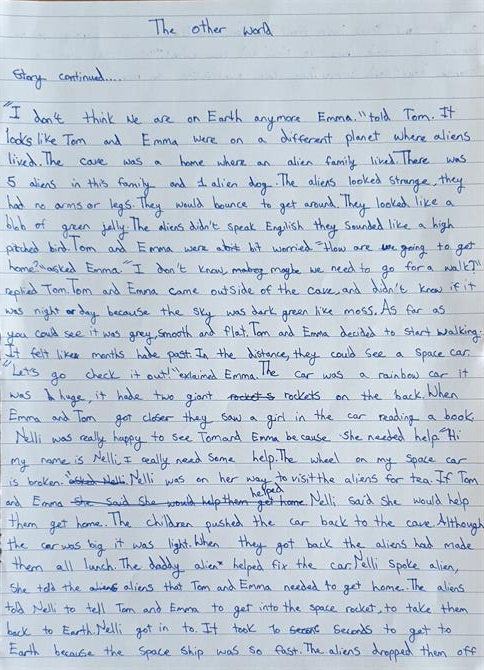 The other world
Story continued.....
"I don't think we are on Earth anymore Emma." told Tom. It
looks like Tom and Emma were on a different planet where aliens
lived. The cave was a home where an alien family lived. There was
5 aliens in this family and 1 alien dog. The aliens looked strange, they
had no arms or legs. They would bounce to get around. They looked like a
blob of green jelly. The aliens didn't speak English they sounded like a high
pitched bird. Tom and Emma were a bit worried. "How are we going to get
home?" asked Emma. "I don't know, maybe we need to go for a walk?"
replied Tom. Tom and Emma came outside of the cave, and didn't know if it
was night or day because the sky was dark green like moss. As far as
you could see it was grey, smooth and flat. Tom and Emma decided to start walking.
It felt like months hade past. In the distance, they could see a space car.
"Let's go check it out!" exlaimed Emma. The car was a rainbow car it
was huge, it hade two giant rockets on the back. When
Emma and Tom got closer they saw a girl in the car reading a book.
Nelli was really happy to see Tom and Emma because she needed help. "Hi
my name is Nelli, I really need some help. The wheel on my space car
is broken. Nelli was on her way to visit the aliens for tea. If Tom
and Emma helped Nelli said she would help
them get home. The children pushed the car back to the cave. Although
the car was big it was light. When they got back the aliens had made
them all lunch. The daddy alien helped fix the car. Nelli spoke alien,
she told the aliens that Tom and Emma needed to get home. The aliens
told Nelli to tell Tom and Emma to get into the space rocket, to take them
back to Earth. Nelli got in to. It took 10 seconds to get to
Earth because the space ship was so fast. The aliens dropped them off